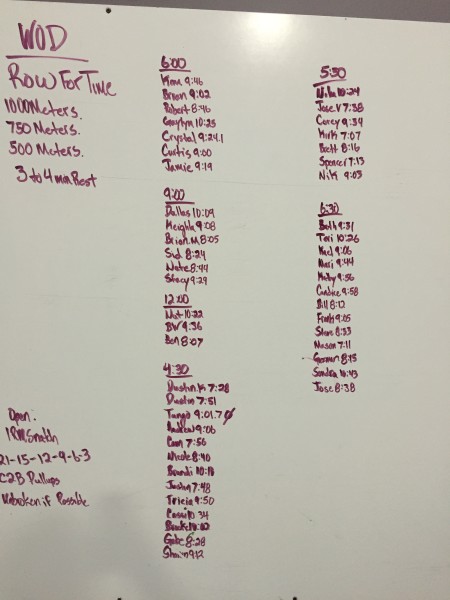 WOD
Row For Time
1000 Meters.
750 Meters.
500 Meters.
3 to 4 min Rest
Open:
1RM Snatch
21-15-12-9-6-3
C2B Pullups
Unbroken if Possible
6:00
9:46
Brian 9:02
Robert 8:46
10:25
Crystal 9:24.1
Curtis 9:00
Jamie 9:19
9:00
Dallas 10:09
Keighla 9:08
Brian.M 8:05
Sid 8:24
Nate 8:44
Stacy 9:29
12:00
Mat 10:22
BW 9:36
Ben 8:07
4:30
Dustin.K 7:28
Dustin 7:51
Tango 9:01.7
Andrew 9:06
7:56
Nicole 8:40
Brandi 10:18
Justin 7:48
Tricia 9:50
Cassi 10:34
Brooke
Gabe 8:28
Shain 9:12
5:30
10:24
Jose V 7:38
Corey 9:34
Kirk 7:07
Brett 8:16
Spencer 7:13
Nik 9:03
6:30
Beth 9:31
Tori 10:26
9:06
9:44
9:56
Candice 9:58
Bill 8:12
Frank 9:05
Steve 8:33
Mason 7:11
German 8:15
Sandra 10:43
Jose 8:38